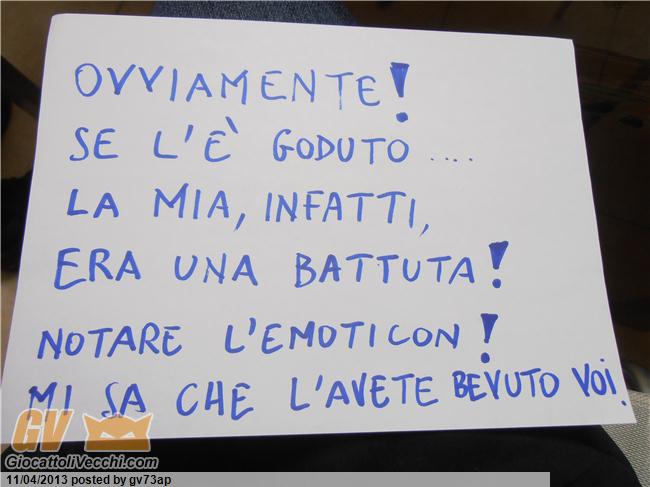 OVVIAMENTE!
SE L'È GODUTO ....
LA MIA, INFATTI,
ERA UNA BATTUTA!
NOTARE L'EMOTICON!
MI SA CHE L'AVETE BEVUTO VOI.
GV
GiocattoliVecchi.com
11/04/2013 posted by gv73ap